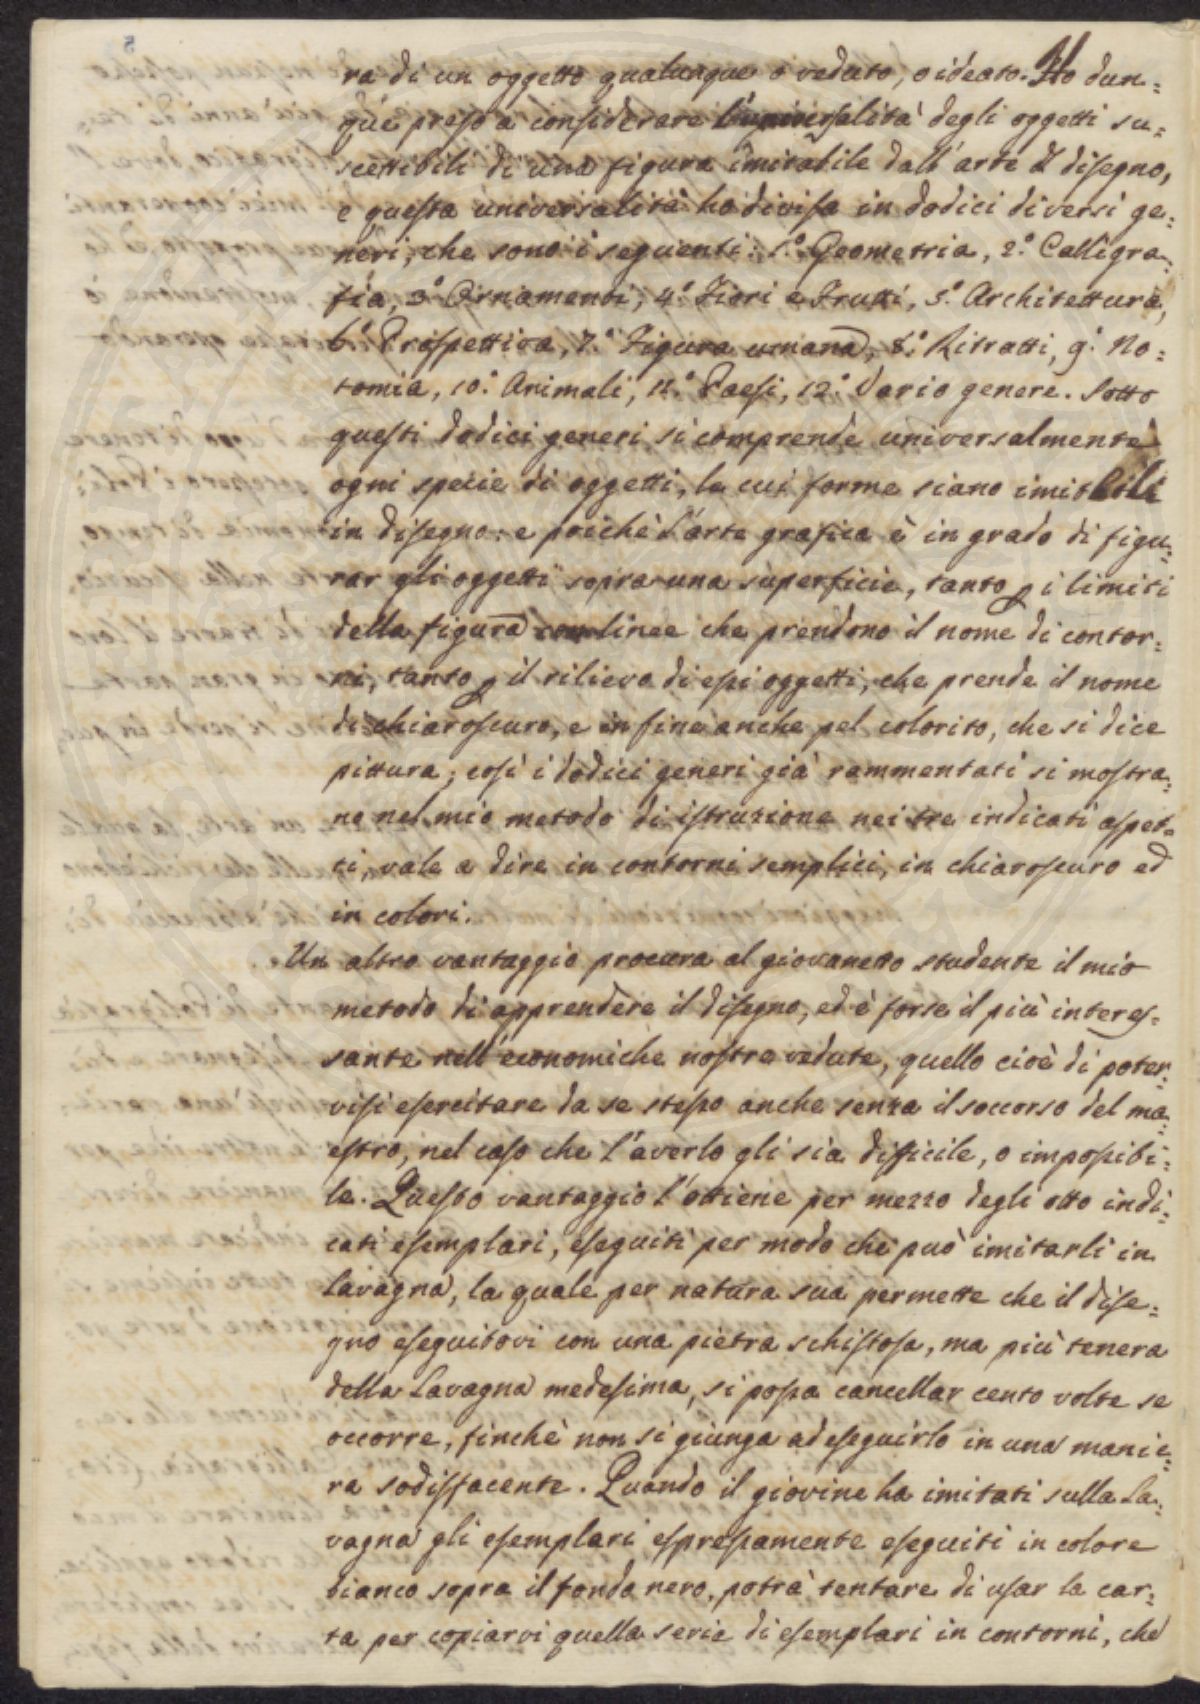 ra di un oggetto qualunque o veduto, o ideato. Ho dun=
que preso a considerare l'universalità degli oggetti su=
scettibili di una figura imitabile dall'arte del disegno,
e questa universalità ho divisa in dodici diversi ge=
neri, che sono i seguenti: 1.° Geometria, 2.° Calligra=
fia, 3.° Ornamenti, 4.° Fiori e Frutti, 5.° Architettura,
6.° Prospettiva, 7.° Figura umana, 8.° Ritratti, 9.° No=
tomia, 10.° Animali, 11.° Paesi, 12.° Vario genere. Sotto
questi dodici generi si comprende universalmente
ogni specie di oggetti, le cui forme siano imitabili
in disegno: e poichè l'arte grafica è in grado di figu=
rar gli oggetti sopra una superficie, tanto p i limiti
della figura con linee che prendono il nome di contor=
ni, tanto p il rilievo di essi oggetti, che prende il nome
di chiaroscuro, e in fine anche pel colorito, che si dice
pittura; così i dodici generi già rammentati si mostra=
no nel mio metodo di istruzione nei tre indicati aspet=
ti, vale a dire in contorni semplici, in chiaroscuro ed
in colori.
Un altro vantaggio procura al giovanetto studente il mio
metodo di apprendere il disegno, ed è forse il più interes=
sante nell'economiche nostre vedute, quello cioè di poter=
visi esercitare da se stesso anche senza il soccorso del ma=
estro, nel caso che l'averlo gli sia difficile, o impossibi=
le. Questo vantaggio l'ottiene per mezzo degli otto indi=
cati esemplari, eseguiti per modo che può imitarli in
Lavagna, la quale per natura sua permette che il dise=
gno eseguitovi con una pietra schistosa, ma più tenera
della Lavagna medesima, si possa cancellar cento volte se
occorre, finchè non si giunga ad eseguirlo in una manie=
ra sodisfacente. Quando il giovine ha imitati sulla La=
vagna gli esemplari espressamente eseguiti in colore
bianco sopra il fondo nero, potrà tentare di usar la car=
ta per copiarvi quella serie di esemplari in contorni, che